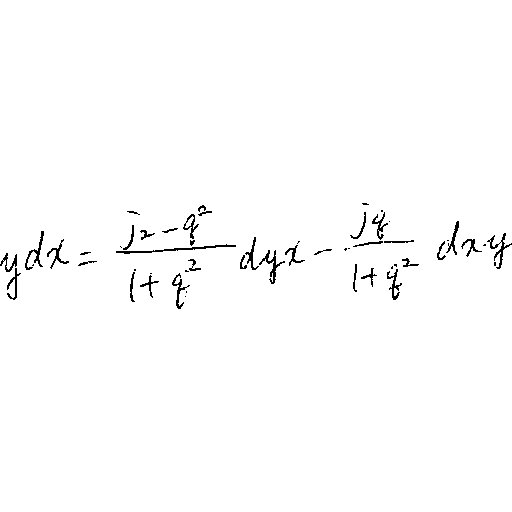 $y d x = \frac{j^2 - q^2}{1 + q^2} d y x - \frac{j q}{1 + q^2} d x y$